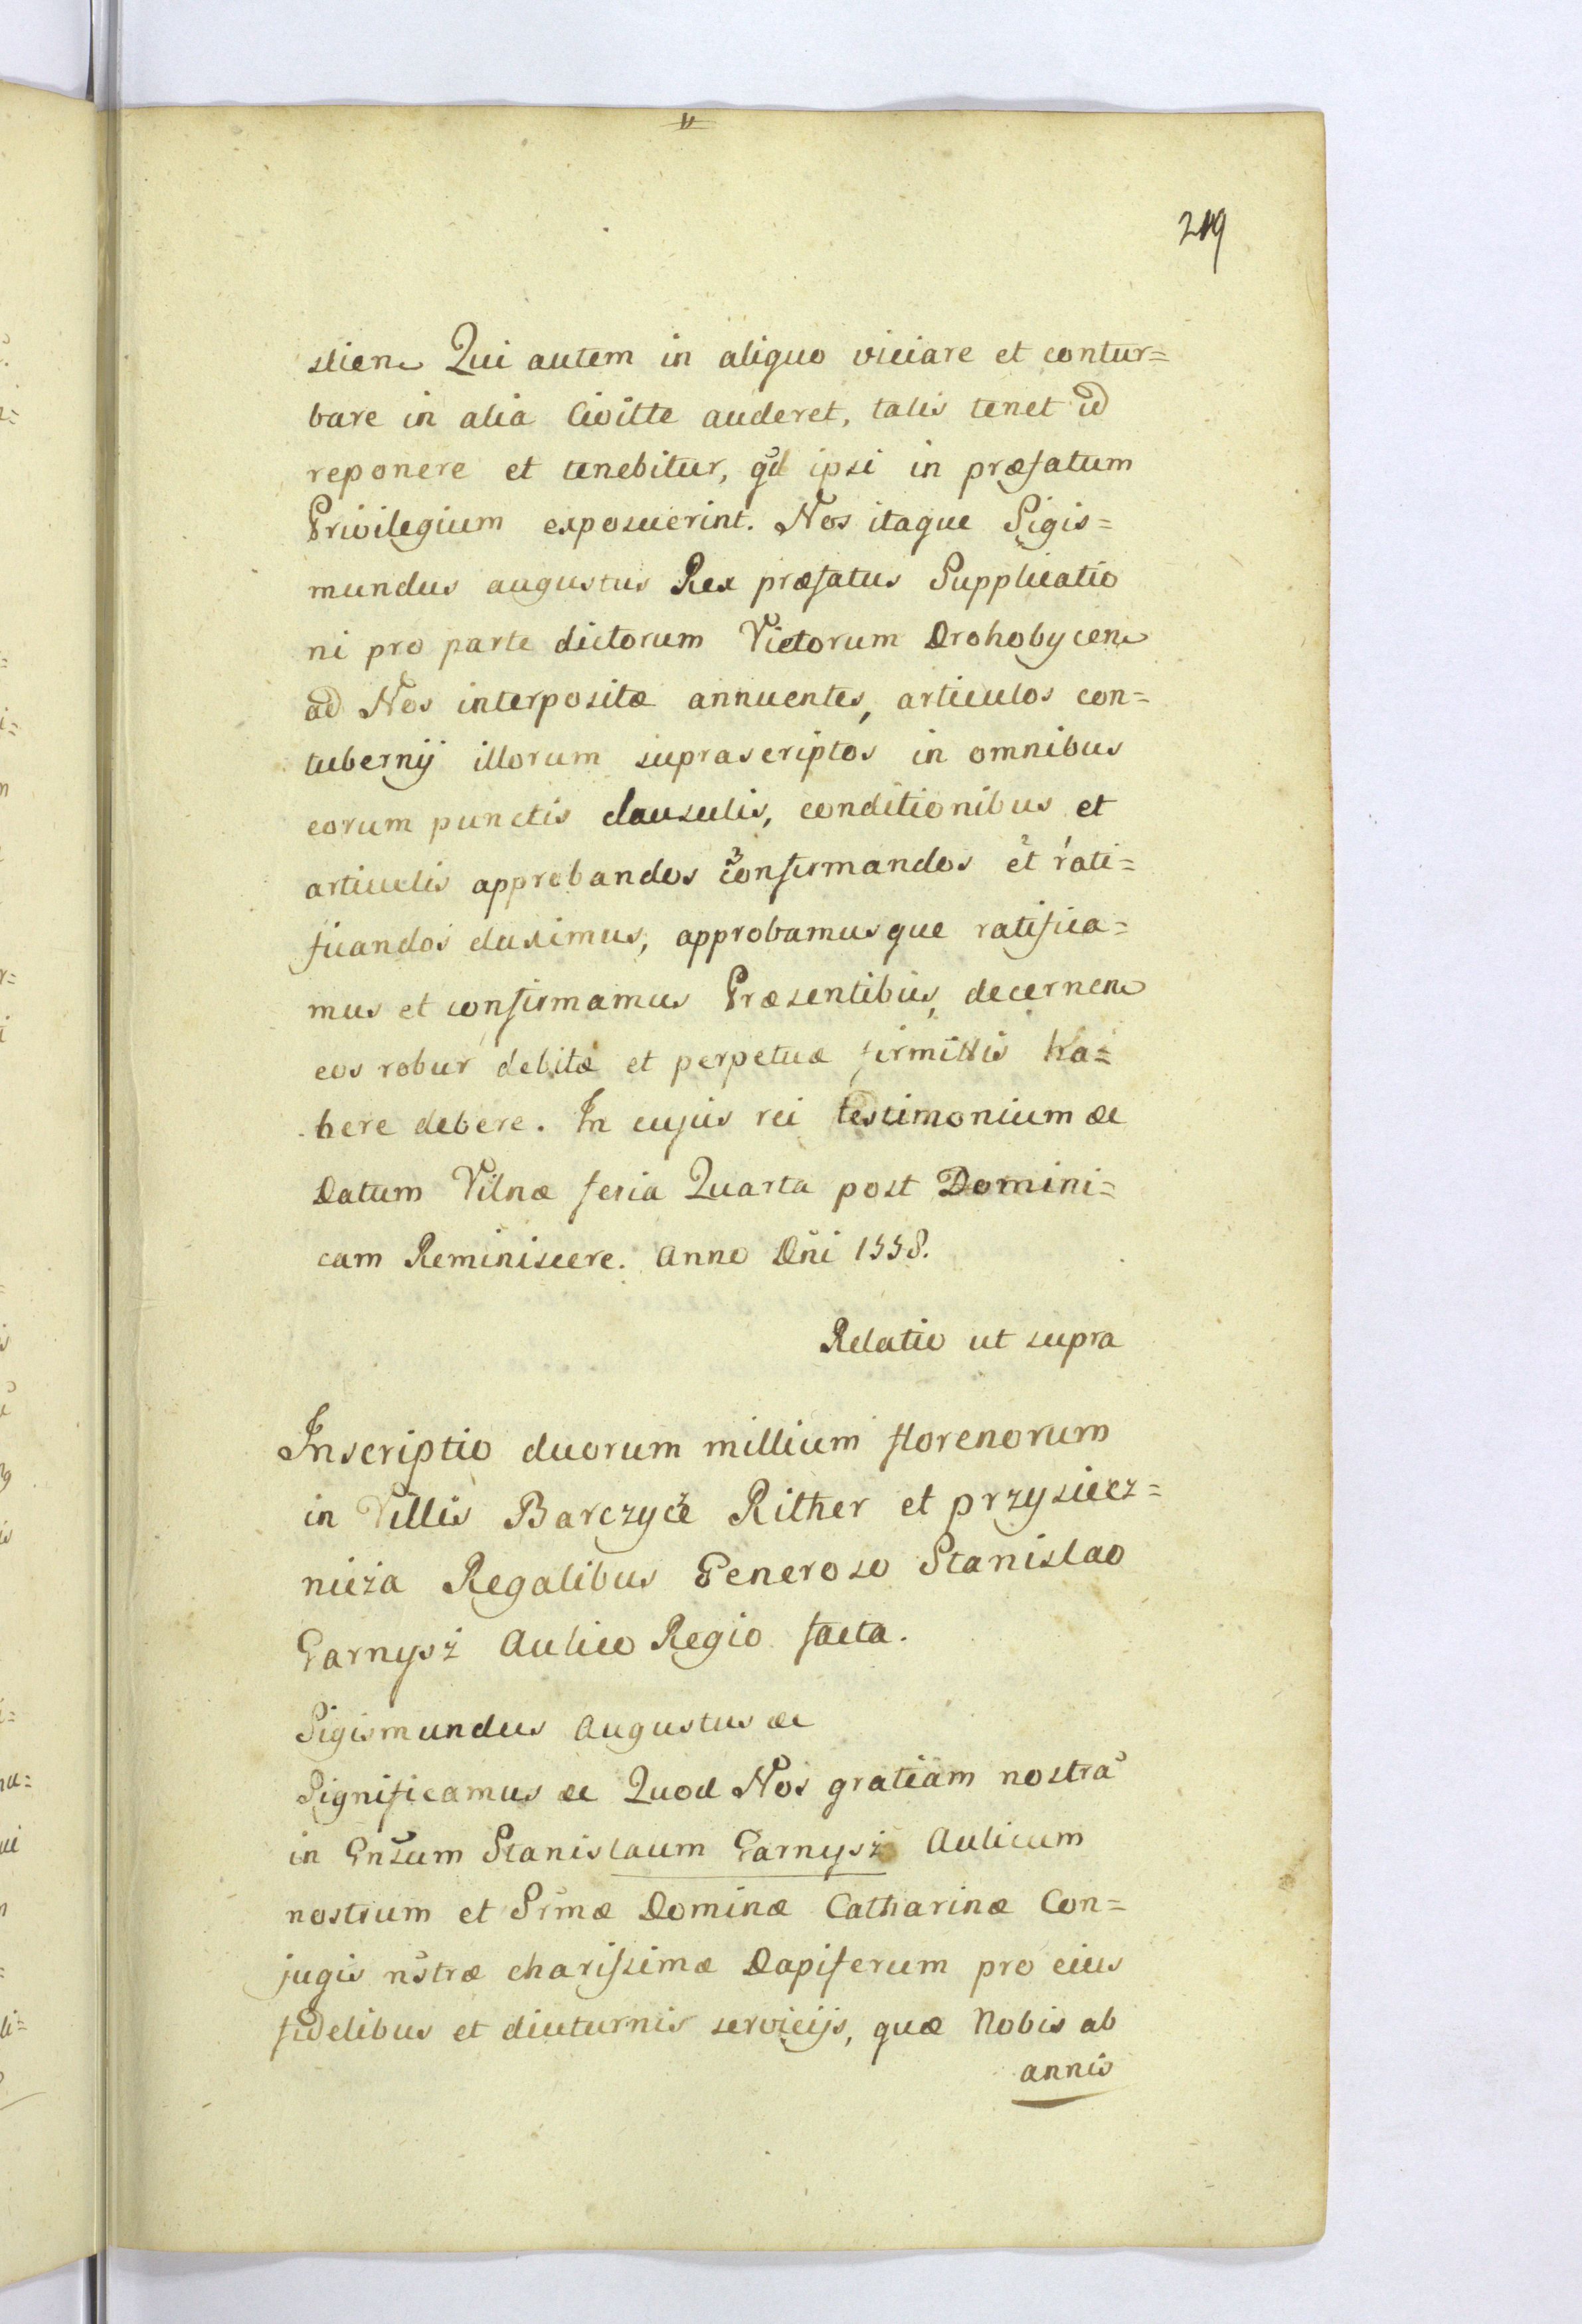 219
stien Qui autem in aliquo viciare et contur=
bare in alia Civitte auderet, talis tenet id
reponere et tenebitur, qd ipsi in præfatum
Privilegium exposuerint. Nos itaque Sigis=
mundus augustus Rex præfatus Supplicatio
ni pro parte dictorum Victorum Drohobycen
ad Nos interpositæ annuentes, articulos con=
tubernij illorum suprascriptos in omnibus
eorum punctis clausulis, conditionibus et
articulis approbandos confirmandos et rati=
ficandos duximus, approbamusque ratifica=
mus et confirmamus Præsentibus, decernen
eos robur debitæ et perpetuæ firmittis ha=
bere debere. In cujus rei testimonium &c
Datum Vilnæ feria Quarta post Domini=
cam Reminiscere. Anno Dñi 1558.
Relatio ut supra
Inscriptio duorum millium florenorum
in Villis Barczyce Rither et przysiecz=
nicza Regalibus Generoso Stanislao
Garnysz Aulico Regio facta.
Sigismundus Augustus &c
Significamus &c Quod Nos gratiam nostrã
in Gnsum Stanislaum Garnysz Aulicum
nostrum et Srmæ Dominæ Catharinæ Con=
jugis nstræ charissimæ Dapiferum pro eius
fidelibus et diuturnis servicijs, quæ Nobis ab
annis